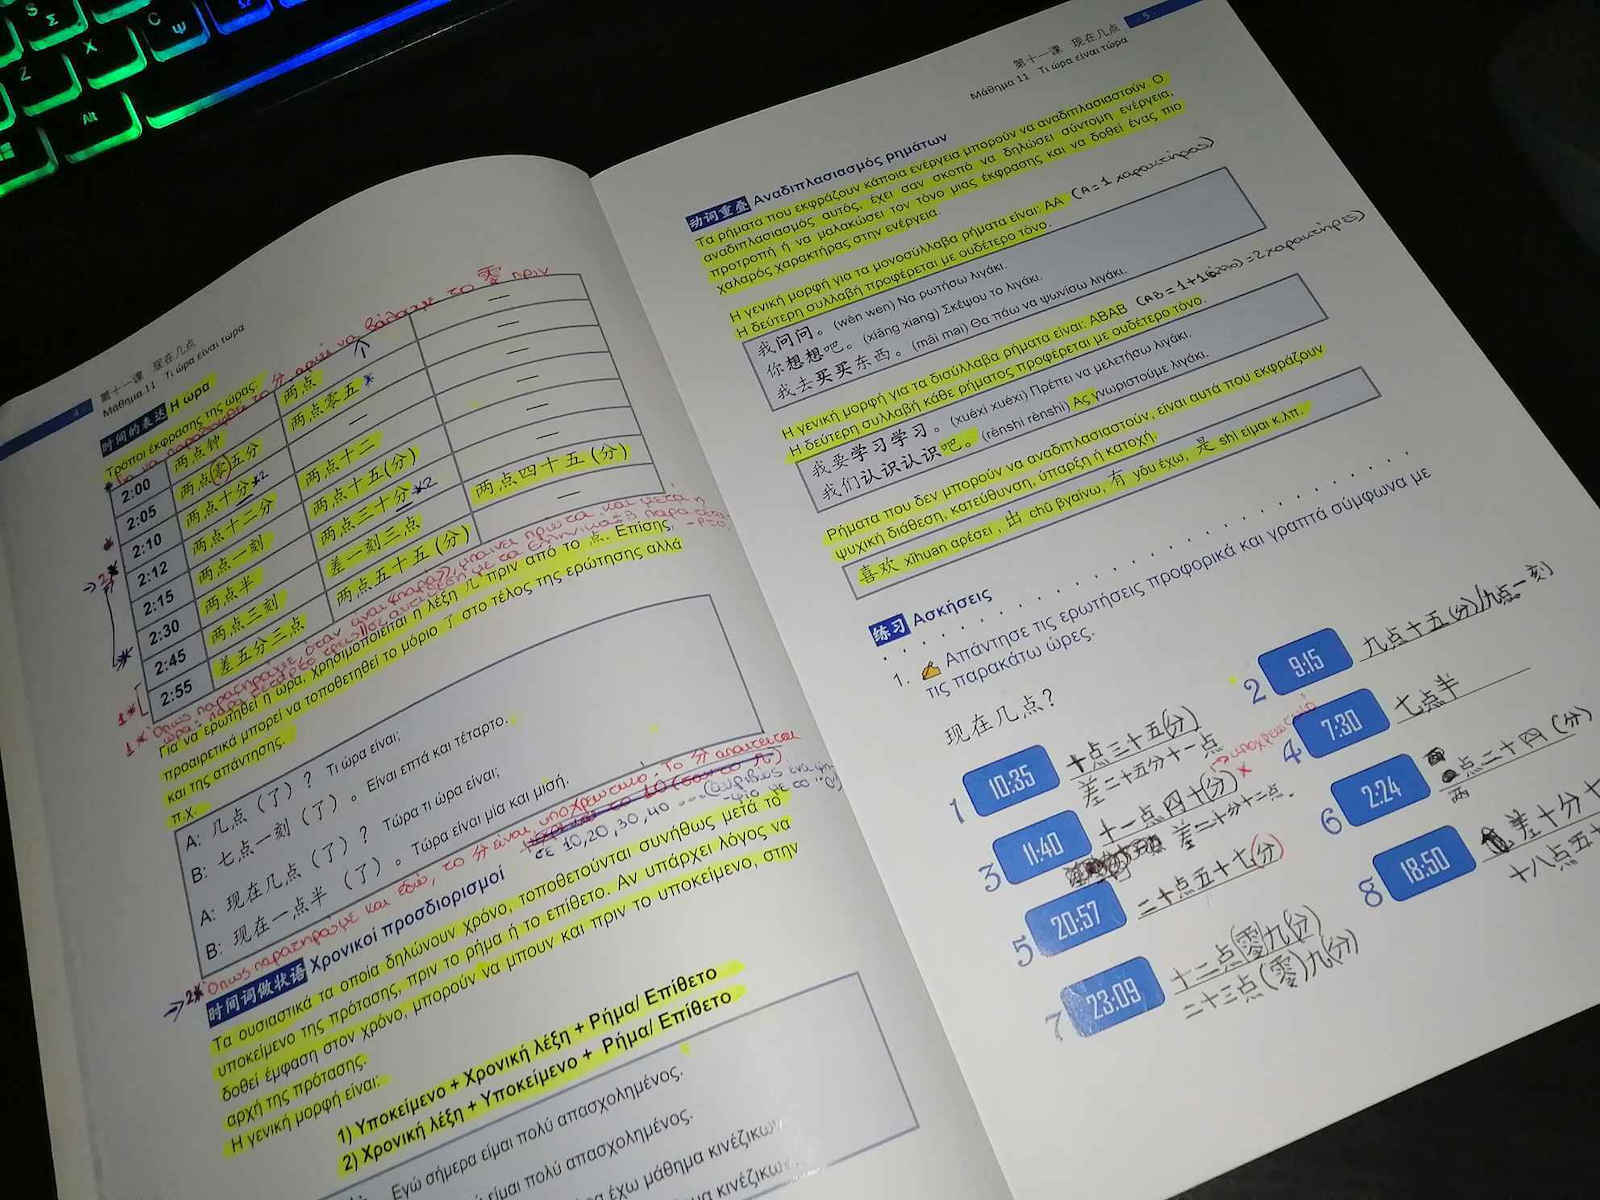 Σ
Z
X
C
Ψ
Alt
4
第十一课 现在几点
Μάθημα 11 Τι ώρα είναι τώρα
时间的表达 Η ώρα
Τρόποι έκφρασης της ώρας:
2:00 两点钟 两点 —
2:05 两点(零)五分 两点零五* —
2:10 两点十分*2 — —
2:12 两点十二分 两点十二 —
2:15 两点一刻 两点十五(分) —
2:30 两点半 两点三十分*2 —
2:45 两点三刻 差一刻三点 两点四十五(分)
2:55 差五分三点 两点五十五(分) —
Για να ερωτηθεί η ώρα, χρησιμοποιείται η λέξη 几 πριν από το 点. Επίσης,
προαιρετικά μπορεί να τοποθετηθεί το μόριο 了 στο τέλος της ερώτησης αλλά
και της απάντησης.
π.χ.
A: 几点(了)? Τι ώρα είναι;
B: 七点一刻(了)。 Είναι επτά και τέταρτο.
A: 现在几点(了)? Τώρα τι ώρα είναι;
B: 现在一点半(了)。 Τώρα είναι μία και μισή.
σε 10,20,30,40
时间词做状语 Χρονικοί προσδιορισμοί
Τα ουσιαστικά τα οποία δηλώνουν χρόνο, τοποθετούνται συνήθως μετά το
υποκείμενο της πρότασης, πριν το ρήμα ή το επίθετο. Αν υπάρχει λόγος να
δοθεί έμφαση στον χρόνο, μπορούν να μπουν και πριν το υποκείμενο, στην
αρχή της πρότασης.
Η γενική μορφή είναι:
1) Υποκείμενο + Χρονική λέξη + Ρήμα/ Επίθετο
2) Χρονική λέξη + Υποκείμενο + Ρήμα/ Επίθετο
Εγώ σήμερα είμαι πολύ απασχολημένος.
είμαι πολύ απασχολημένος.
έχω μάθημα κινέζικων
5
第十一课 现在几点
Μάθημα 11 Τι ώρα είναι τώρα
动词重叠 Αναδιπλασιασμός ρημάτων
Τα ρήματα που εκφράζουν κάποια ενέργεια μπορούν να αναδιπλασιαστούν. Ο
αναδιπλασιασμός αυτός, έχει σαν σκοπό να δηλώσει σύντομη ενέργεια,
προτροπή ή να μαλακώσει τον τόνο μιας έκφρασης και να δοθεί ένας πιο
χαλαρός χαρακτήρας στην ενέργεια.
Η γενική μορφή για τα μονοσύλλαβα ρήματα είναι: AA (A=1 χαρακτήρας)
Η δεύτερη συλλαβή προφέρεται με ουδέτερο τόνο.
我问问。 (wèn wen) Να ρωτήσω λιγάκι.
你想想吧。 (xiǎng xiang) Σκέψου το λιγάκι.
我去买买东西。 (mǎi mai) Θα πάω να ψωνίσω λιγάκι.
Η γενική μορφή για τα δισύλλαβα ρήματα είναι: ABAB
Η δεύτερη συλλαβή κάθε ρήματος προφέρεται με ουδέτερο τόνο.
我要学习学习。 (xuéxi xuéxi) Πρέπει να μελετήσω λιγάκι.
我们认识认识吧。 (rènshi rènshi) Ας γνωριστούμε λιγάκι.
Ρήματα που δεν μπορούν να αναδιπλασιαστούν, είναι αυτά που εκφράζουν
ψυχική διάθεση, κατεύθυνση, ύπαρξη ή κατοχή.
喜欢 xǐhuan αρέσει, 出 chū βγαίνω, 有 yǒu έχω, 是 shì είμαι κ.λπ.
练习 Ασκήσεις
1. Απάντησε τις ερωτήσεις προφορικά και γραπτά σύμφωνα με
τις παρακάτω ώρες.
现在几点?
1 10:35 十点三十五(分)
差二十五分十一点
2 9:15 九点十五(分)/九点一刻
3 11:40 十一点四十(分)
差二十分十二点.
4 7:30 七点半
5 20:57 二十点五十七(分)
6 2:24 两点二十四(分)
7 23:09 十二点(零)九(分)
二十三点(零)九(分)
8 18:50 差十分十
十八点五十